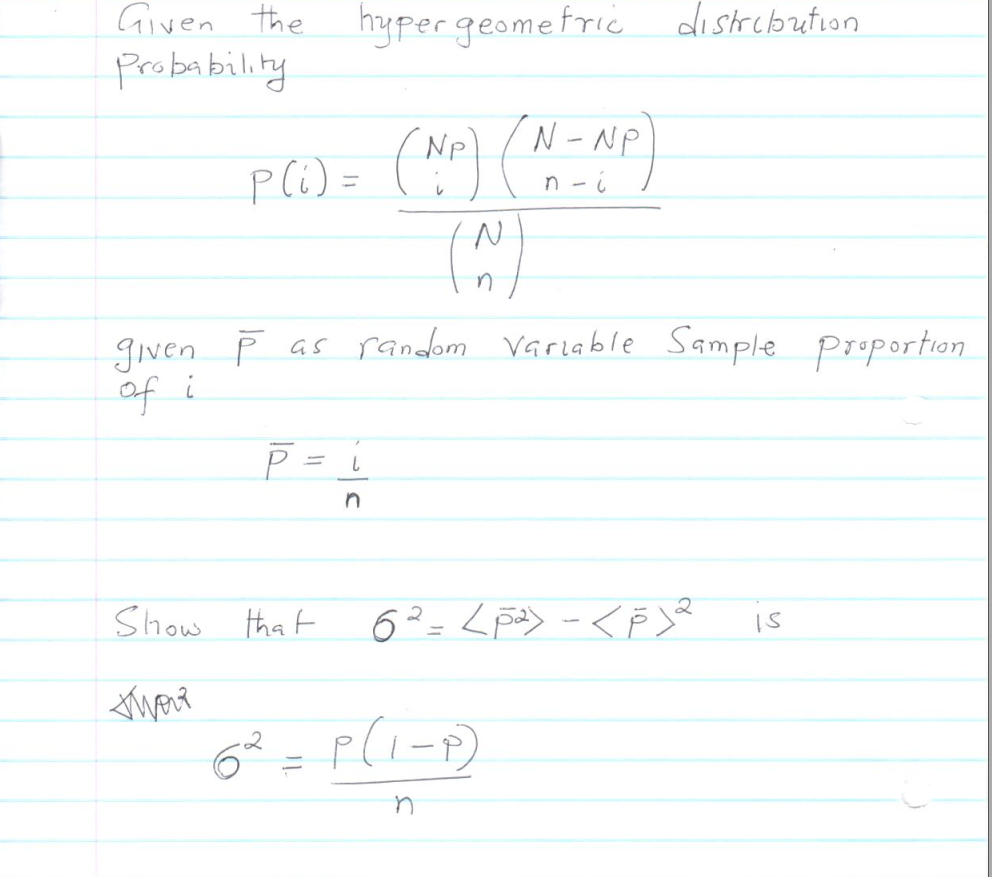 Given the hypergeometric distribution
Probability
P(i) = (NP i) (N - NP n - i) / (N n)
given P̅ as random variable Sample proportion
of i
P̅ = i / n
Show that σ² = <p̅²> - <p̅>² is
σ² = P(1-P) / n